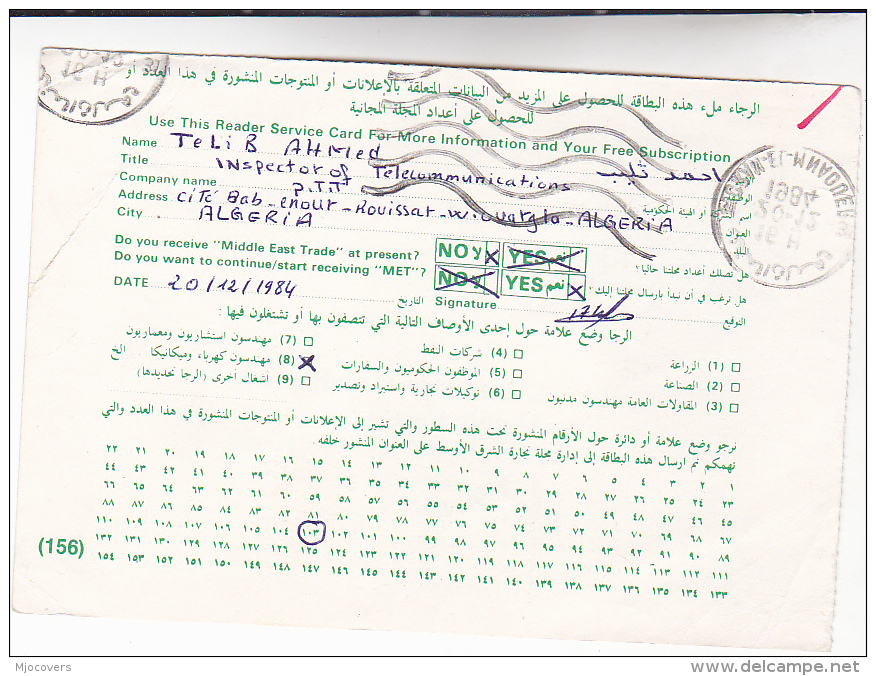 الرجاء ملء هذه البطاقة للحصول على المزيد من البيانات المتعلقة بالإعلانات أو المنتوجات المنشورة في هذا العدد أو
للحصول على أعداد المجلة المجانية
Use This Reader Service Card For More Information and Your Free Subscription
Name TeLiB AHMed احمد تليب
Title Inspector of Telecommunications
Company name P.T.T اسم الشركة أو الهيئة الحكومية
Address Cité Bab-enour-Rouissat-W. ouargla-ALGERiA العنوان
City ALGERiA البلد
Do you receive "Middle East Trade" at present? NO لا X YES نعم هل تصلك أعداد مجلتنا حاليا؟
Do you want to continue/start receiving "MET"? NO لا YES نعم X هل ترغب في أن نبدأ بإرسال مجلتنا إليك؟
DATE 20/12/1984 التاريخ Signature التوقيع
الرجا وضع علامة حول إحدى الأوصاف التالية التي تتصفون بها أو تشتغلون فيها :
(1) الزراعة (4) شركات النفط (7) مهندسون استشاريون ومعماريون
(2) الصناعة (5) الموظفون الحكوميون والسفارات (8) مهندسون كهرباء وميكانيكا الخ
(3) المقاولات العامة مهندسون مدنيون (6) توكيلات تجارية واستيراد وتصدير (9) أشغال أخرى (الرجا تحديدها)
نرجو وضع علامة أو دائرة حول الأرقام المنشورة تحت هذه السطور والتي تشير إلى الإعلانات أو المنتوجات المنشورة في هذا العدد والتي
تهمكم ثم ارسال هذه البطاقة إلى إدارة مجلة تجارة الشرق الأوسط على العنوان المنشور خلفه .
١ ٢ ٣ ٤ ٥ ٦ ٧ ٨ ٩ ١٠ ١١ ١٢ ١٣ ١٤ ١٥ ١٦ ١٧ ١٨ ١٩ ٢٠ ٢١ ٢٢
٢٣ ٢٤ ٢٥ ٢٦ ٢٧ ٢٨ ٢٩ ٣٠ ٣١ ٣٢ ٣٣ ٣٤ ٣٥ ٣٦ ٣٧ ٣٨ ٣٩ ٤٠ ٤١ ٤٢ ٤٣ ٤٤
٤٥ ٤٦ ٤٧ ٤٨ ٤٩ ٥٠ ٥١ ٥٢ ٥٣ ٥٤ ٥٥ ٥٦ ٥٧ ٥٨ ٥٩ ٦٠ ٦١ ٦٢ ٦٣ ٦٤ ٦٥ ٦٦
٦٧ ٦٨ ٦٩ ٧٠ ٧١ ٧٢ ٧٣ ٧٤ ٧٥ ٧٦ ٧٧ ٧٨ ٧٩ ٨٠ ٨١ ٨٢ ٨٣ ٨٤ ٨٥ ٨٦ ٨٧ ٨٨
٨٩ ٩٠ ٩١ ٩٢ ٩٣ ٩٤ ٩٥ ٩٦ ٩٧ ٩٨ ٩٩ ١٠٠ ١٠١ ١٠٢ ١٠٣ ١٠٤ ١٠٥ ١٠٦ ١٠٧ ١٠٨ ١٠٩ ١١٠
١١١ ١١٢ ١١٣ ١١٤ ١١٥ ١١٦ ١١٧ ١١٨ ١١٩ ١٢٠ ١٢١ ١٢٢ ١٢٣ ١٢٤ ١٢٥ ١٢٦ ١٢٧ ١٢٨ ١٢٩ ١٣٠ ١٣١ ١٣٢
١٣٣ ١٣٤ ١٣٥ ١٣٦ ١٣٧ ١٣٨ ١٣٩ ١٤٠ ١٤١ ١٤٢ ١٤٣ ١٤٤ ١٤٥ ١٤٦ ١٤٧ ١٤٨ ١٤٩ ١٥٠ ١٥١ ١٥٢ ١٥٣ ١٥٤
(156)
Mjocovers
www.delcampe.net